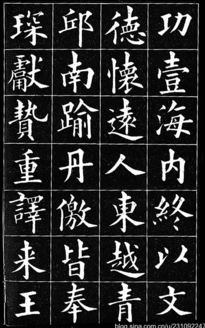 功壹海内終以文
德懷遠人東越青
邱南踰丹徼皆奉
琛獻贄重譯来王
blog.sina.com.cn/u/231092247